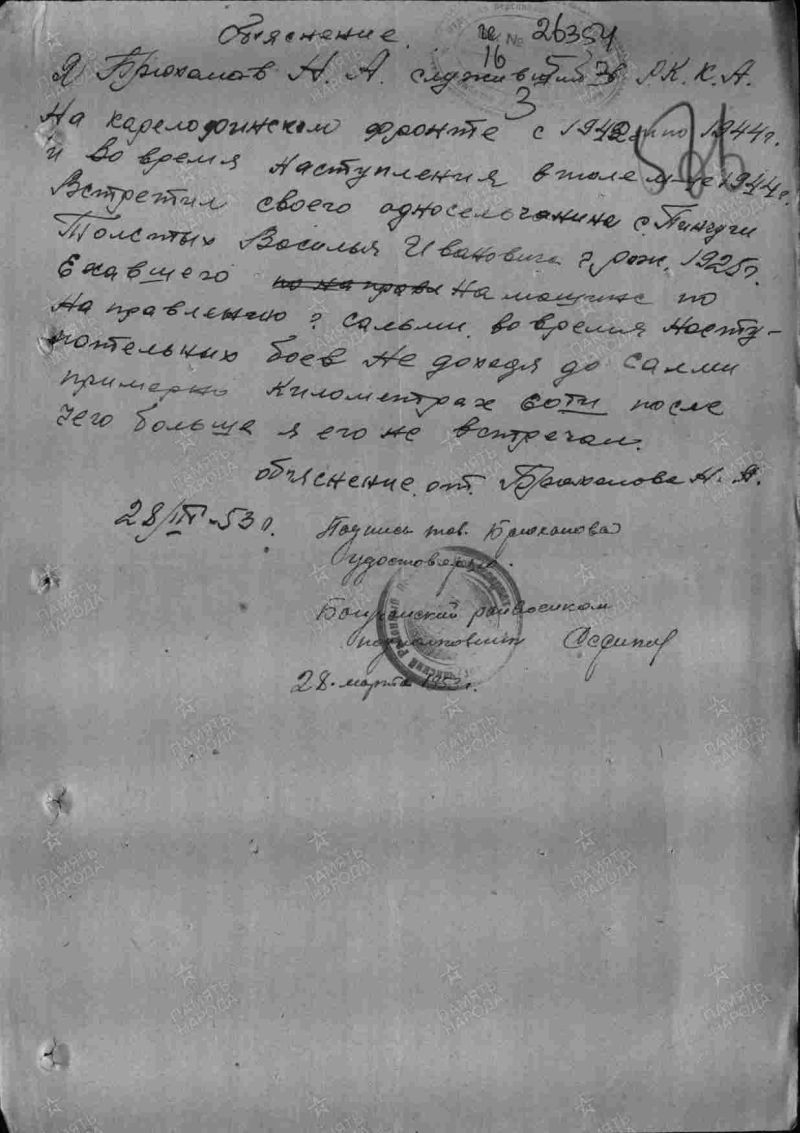 Объяснение.
№ 26354
16
3
Я Брюханов Н. А. служивший в Р.К.К.А.
На карелофинском фронте с 1942 по 1944г.
и во время наступления в июле м-це 1944г.
Встретил своего односельчанина с. Пинчуги
Толстых Василья Ивановича г. рож. 1925г.
Ехавшего по на правл На машине по
На правлению г. сальми. во время Насту-
пательных боев Не доходя до салми
примерно километрах соти после
чего больша я его не встречал.
объяснение от. Брюханова Н. А.
28/III-53 г.
Подпись тов. Брюханова
удостоверяю.
райвоенком
подполковник
28. марта 1953г.
ПАМЯТЬ НАРОДА